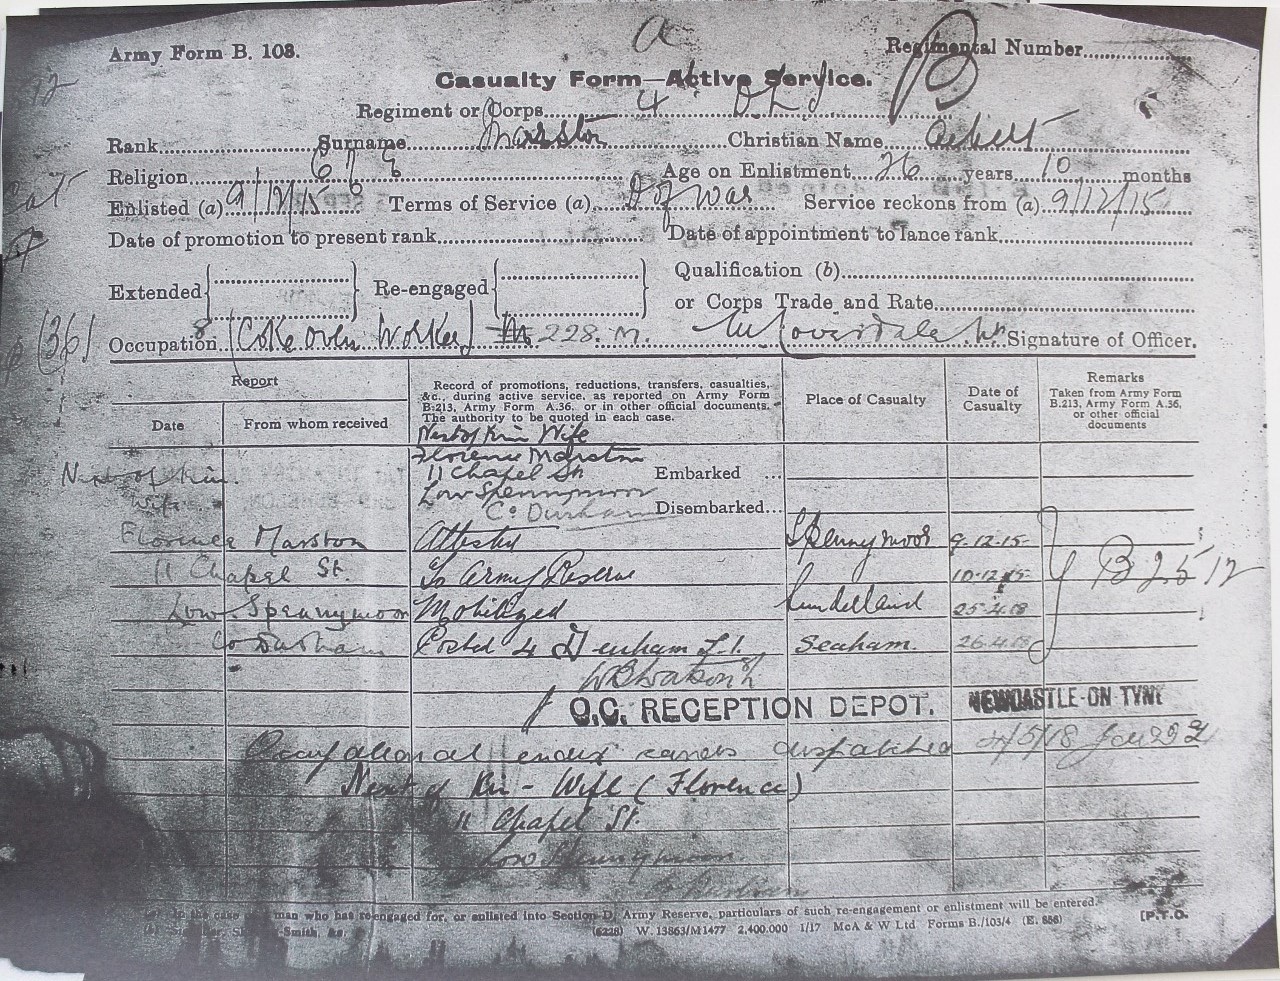 Army Form B. 103.
a
Regimental Number
B
Casualty Form—Active Service.
Regiment or Corps 4 D L I
Rank Surname Marston Christian Name Albert
Religion C of E Age on Enlistment 26 years 10 months
Enlisted (a) 9/12/15 Terms of Service (a) D of War Service reckons from (a) 9/12/15
Date of promotion to present rank Date of appointment to lance rank
Extended Re-engaged Qualification (b)
or Corps Trade and Rate
(36) Occupation Coke Oven Worker 228. M. Coverdale Signature of Officer.
Report
Date From whom received
Record of promotions, reductions, transfers, casualties, &c., during active service, as reported on Army Form B.213, Army Form A.36, or in other official documents. The authority to be quoted in each case.
Place of Casualty
Date of Casualty
Remarks
Taken from Army Form B.213, Army Form A.36, or other official documents
Next of Kin Wife
Florence Marston
11 Chapel St
Low Spennymoor
Co Durham
Embarked ...
Disembarked...
Next of kin.
Wife
Florence Marston
11 Chapel St.
Low Spennymoor
Co Durham
Attested Spennymoor 9.12.15
To Army Reserve 10.12.15
B 2512
Mobilized Sunderland 25.4.18
Posted 4 Durham L.I. Seaham. 26.4.18
W Watson
O.C. RECEPTION DEPOT. NEWCASTLE-ON-TYNE
Occupational cards dispatched 4/5/18
Next of Kin - Wife (Florence)
11 Chapel St.
Low Spennymoor
Co Durham
(a) In the case of a man who has re-engaged for, or enlisted into Section D, Army Reserve, particulars of such re-engagement or enlistment will be entered.
[P.T.O.
(6228) W. 13863/M1477 2,400.000 1/17 McA & W Ltd Forms B./103/4 (E. 856)